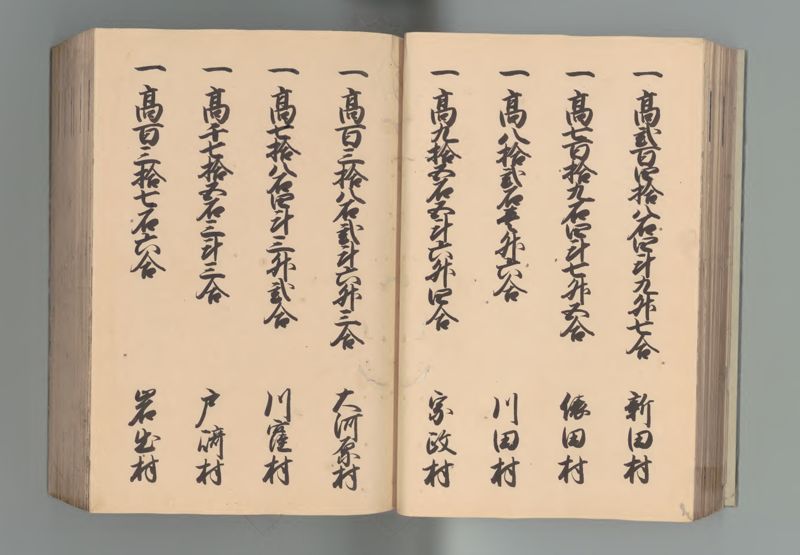 一高弐百四拾八石四斗九升七合 新田村
一高七百拾九石四斗七升五合 俵田村
一高八拾弐石壱升六合 川田村
一高九拾五石五斗六升四合 家政村
一高百三拾八石弐斗六升三合 大河原村
一高七拾八石四斗三升弐合 川窪村
一高千七拾五石三斗三合 戸崎村
一高百三拾七石六合 岩出村